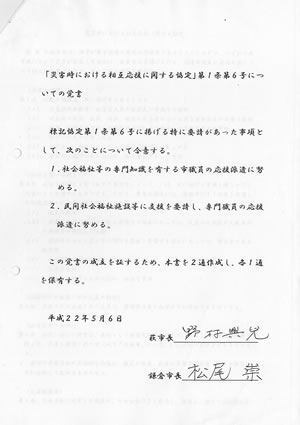 「災害時における相互応援に関する協定」第1条第6号につ
いての覚書
標記協定第1条第6号に掲げる特に要請があった事項と
して、次のことについて合意する。
1.社会福祉等の専門知識を有する市職員の応援派遣に努
める。
2.民間社会福祉施設等に支援を要請し、専門職員の応援
派遣に努める。
この覚書の成立を証するため、本書を2通作成し、各1通
を保有する。
平成22年5月6日
萩市長 野村興兒
鎌倉市長 松尾 崇